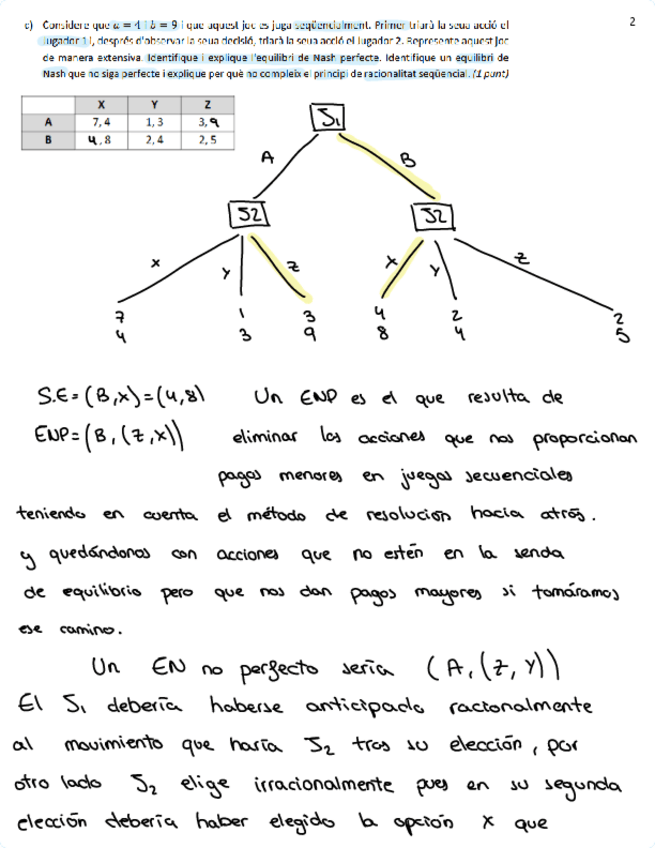 2
c) Considere que a = 4 i b = 9 i que aquest joc es juga seqüencialment. Primer triarà la seua acció el
Jugador 1 i, després d'observar la seua decisió, triarà la seua acció el Jugador 2. Represente aquest joc
de manera extensiva. Identifique i explique l'equilibri de Nash perfecte. Identifique un equilibri de
Nash que no siga perfecte i explique per què no compleix el principi de racionalitat seqüencial. (1 punt)
X Y Z
A 7, 4 1, 3 3, 9
B 4, 8 2, 4 2, 5
J1
A B
J2 J2
X Y Z X Y Z
7 1 3 4 2 2
4 3 9 8 4 5
S.E = (B,x) = (4,8) Un ENP es el que resulta de
ENP = (B, (Z,x)) eliminar las acciones que nos proporcionan
pagos menores en juegos secuenciales
teniendo en cuenta el método de resolución hacia atrás.
y quedándonos con acciones que no estén en la senda
de equilibrio pero que nos dan pagos mayores si tomáramos
ese camino.
Un EN no perfecto sería (A, (Z, Y))
El J1 debería haberse anticipado racionalmente
al movimiento que haría J2 tras su elección, por
otro lado J2 elige irracionalmente pues en su segunda
elección debería haber elegido la opción X que